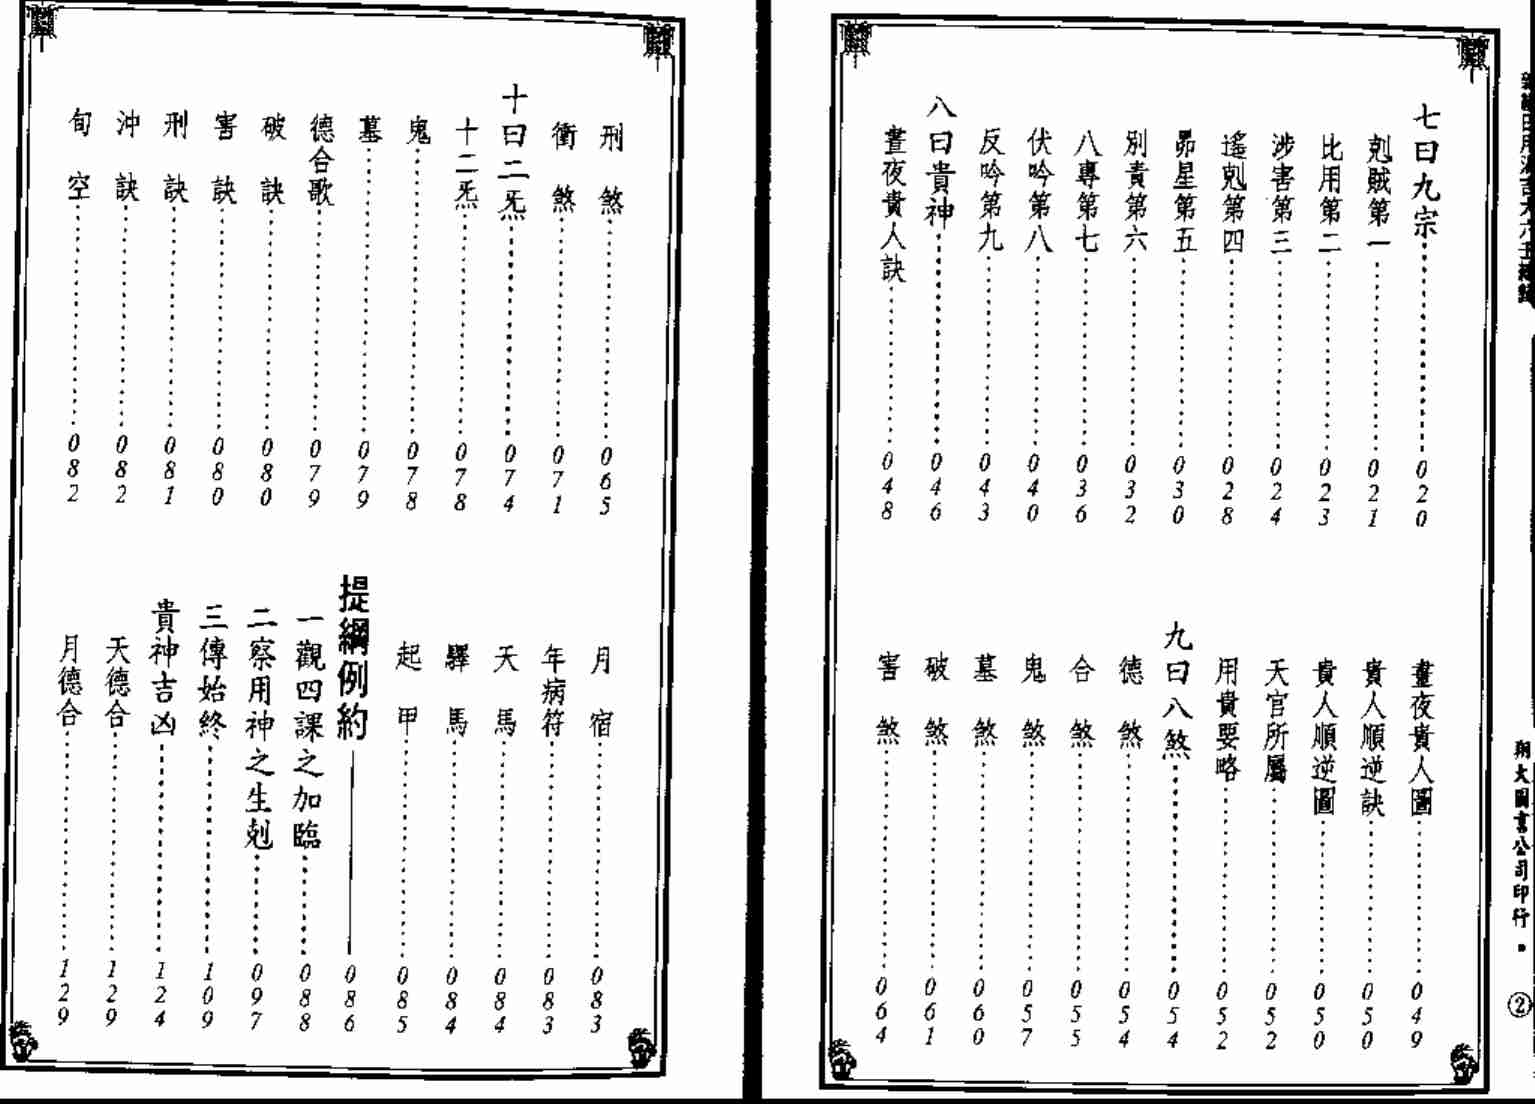 七曰九宗 020
剋賊第一 021
比用第二 023
涉害第三 024
遙剋第四 028
昴星第五 030
別責第六 032
八專第七 036
伏吟第八 040
反吟第九 043
八曰貴神 046
晝夜貴人訣 048
晝夜貴人圖 049
貴人順逆訣 050
貴人順逆圖 050
天官所屬 052
用貴要略 052
九曰八煞 054
德煞 054
合煞 055
鬼煞 057
墓煞 060
破煞 061
害煞 064
翔大圖書公司印行 • ②
刑煞 065
衝煞 071
十曰二炁 074
十二炁 078
鬼 078
墓 079
德合歌 079
破訣 080
害訣 080
刑訣 081
沖訣 082
旬空 082
月宿 083
年病符 083
天馬 084
驛馬 084
起甲 085
提綱例約 086
一觀四課之加臨 088
二察用神之生剋 097
三傳始終 109
貴神吉凶 124
天德合 129
月德合 129